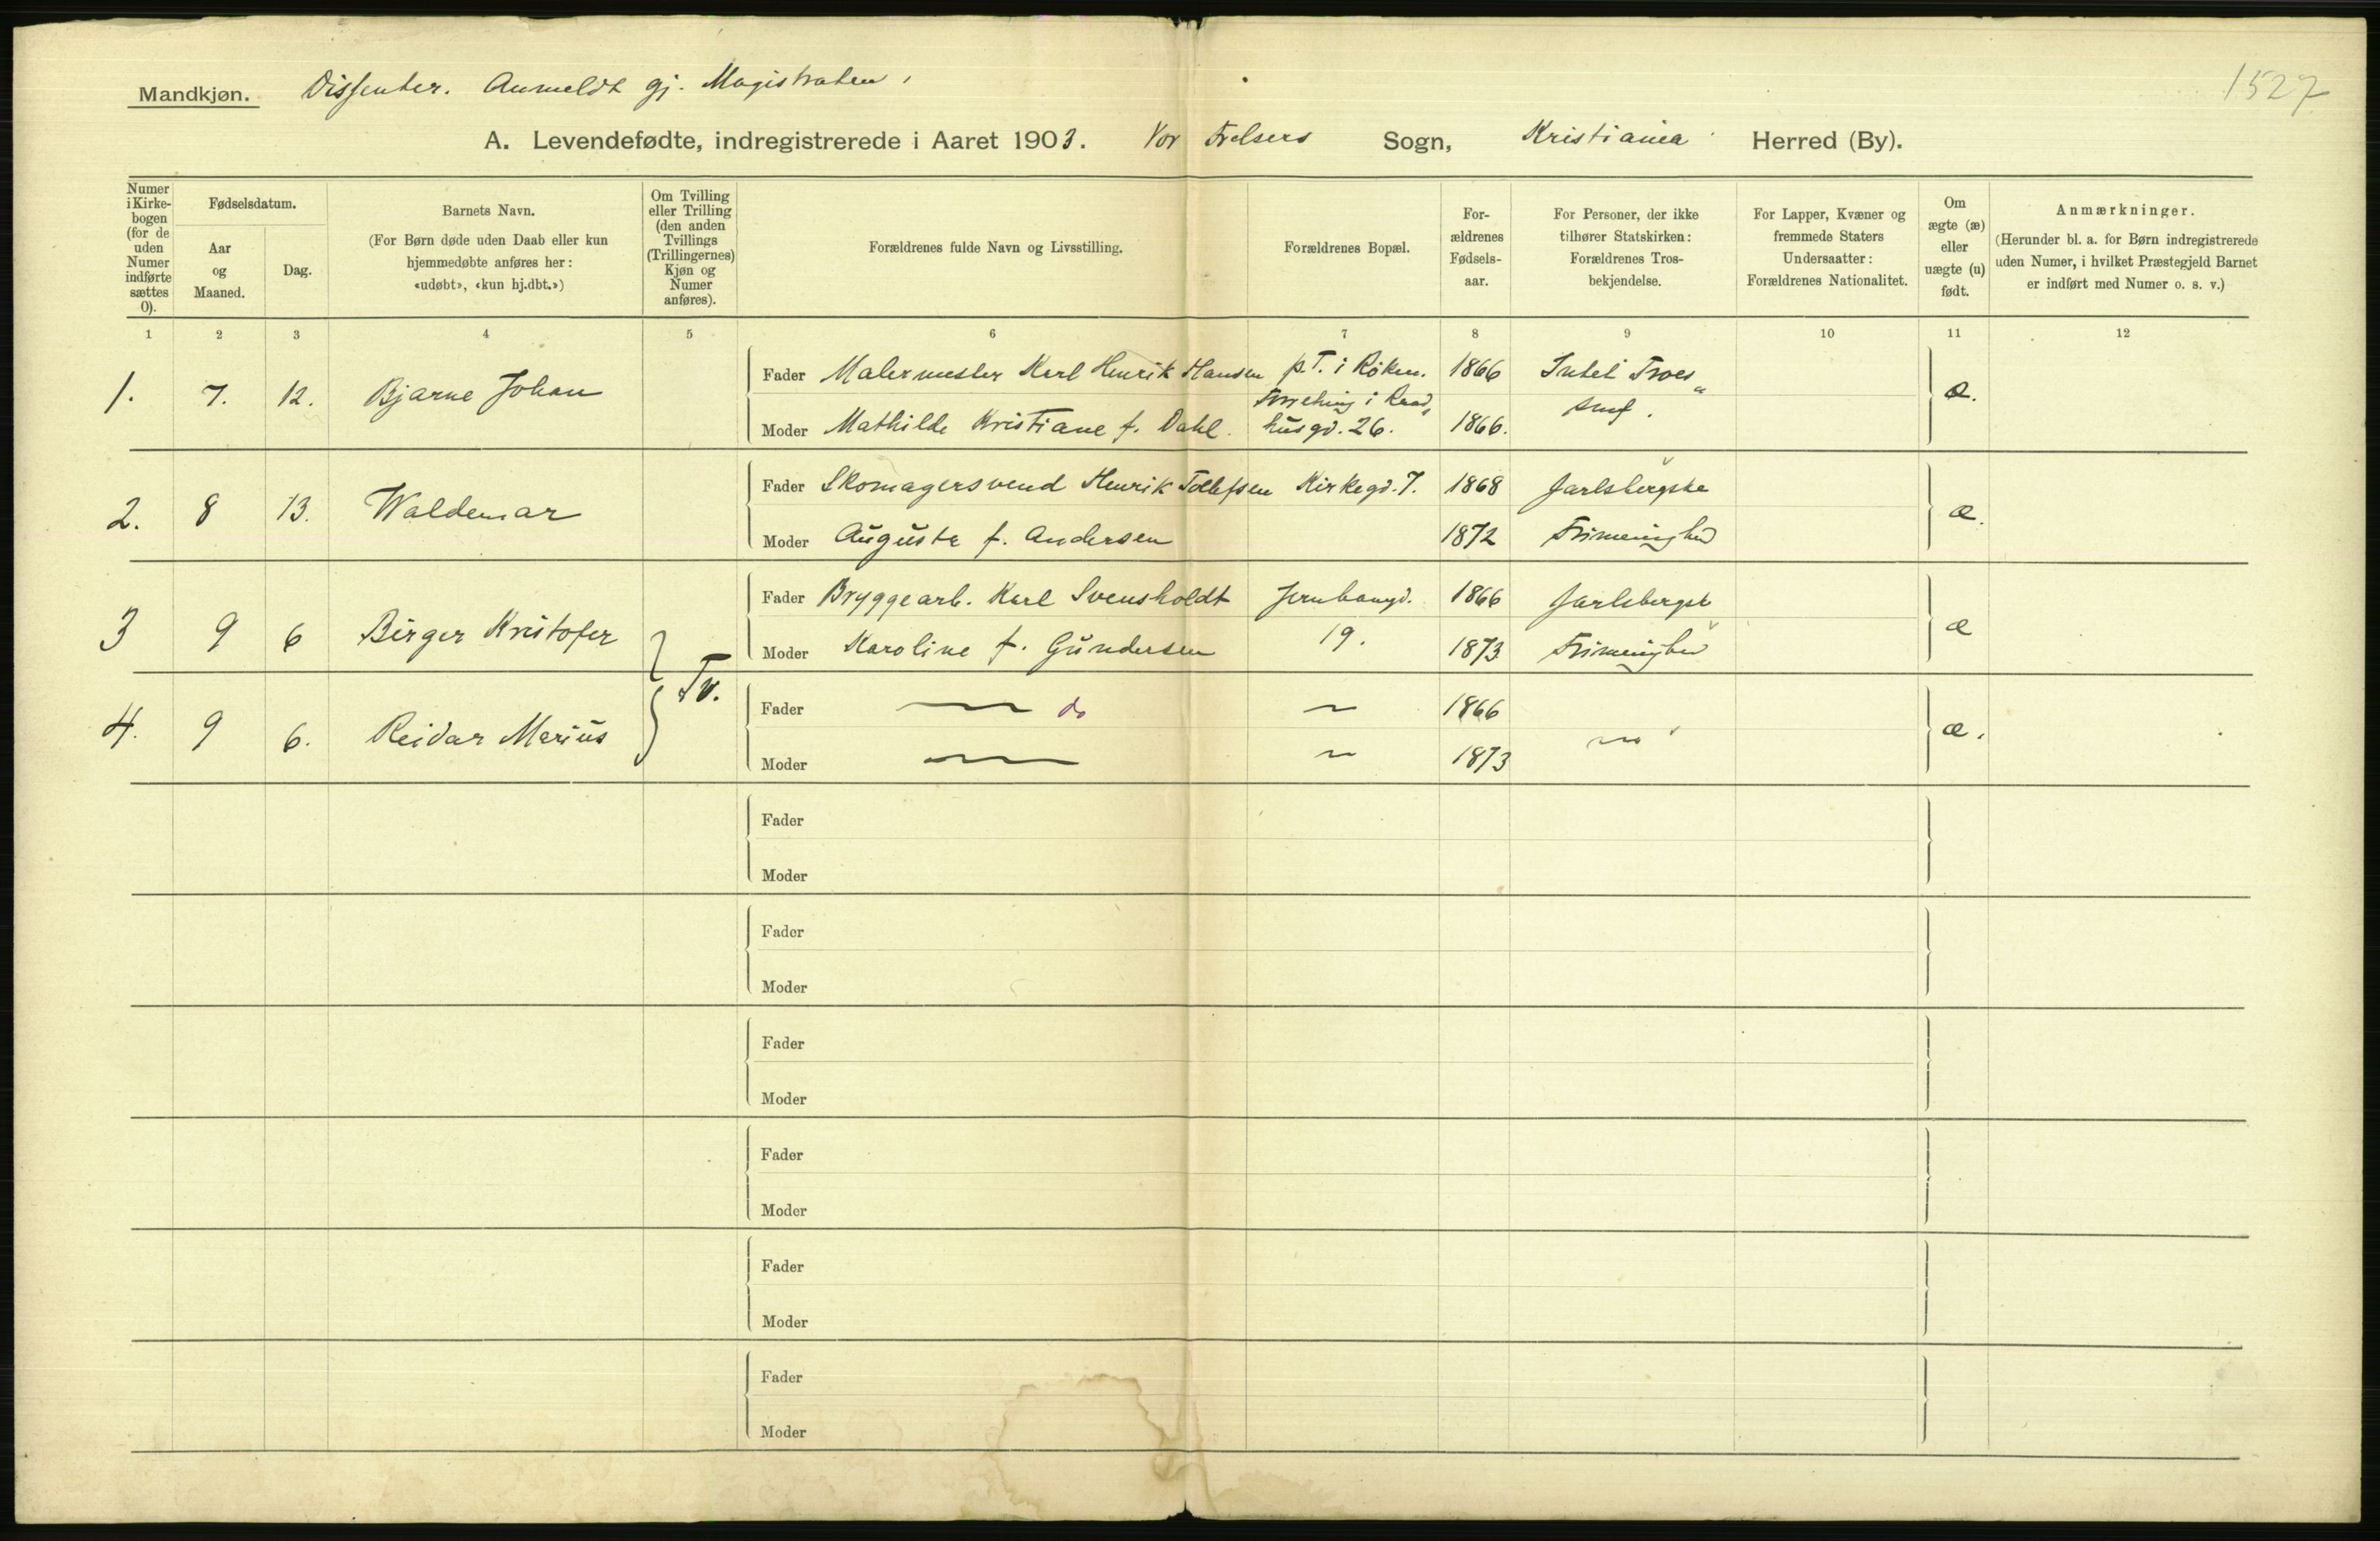 Mandkjøn. Dissenter. Anmeldt gj. Magistraten.
1527
A. Levendefødte, indregistrerede i Aaret 1903. Vor Frelsers Sogn, Kristiania Herred (By).
Numer i Kirke-bogen (for de uden Numer indførte sættes 0).
Fødselsdatum.
Aar og Maaned.
Dag.
Barnets Navn.
(For Børn døde uden Daab eller kun hjemmedøbte anføres her: «udøbt», «kun hj.dbt.»)
Om Tvilling eller Trilling (den anden Tvillings (Trillingernes) Kjøn og Numer anføres).
Forældrenes fulde Navn og Livsstilling.
Forældrenes Bopæl.
For-ældrenes Fødsels-aar.
For Personer, der ikke tilhører Statskirken: Forældrenes Tros-bekjendelse.
For Lapper, Kvæner og fremmede Staters Undersaatter: Forældrenes Nationalitet.
Om ægte (æ) eller uægte (u) født.
Anmærkninger.
(Herunder bl. a. for Børn indregistrerede uden Numer, i hvilket Præstegjeld Barnet er indført med Numer o. s. v.)
1 2 3 4 5 6 7 8 9 10 11 12
1. 7. 12. Bjarne Johan Fader Malermester Karl Henrik Hansen p.T. i Røken. 1866 Intet Troes æ.
Moder Mathilde Kristiane f. Dahl. i Raad husgd. 26. 1866. smf.
2. 8 13. Waldemar Fader Skomagersvend Henrik Tollefsen Kirkegd. 7. 1868 Jarlsbergske æ.
Moder Augusta f. Andersen 1872 Frimenighed
3 9 6 Birger Kristofer Fader Bryggearb. Karl Svensholdt Jernbangd. 1866 Jarlsbergsk æ
Moder Karoline f. Gundersen 19. 1873 Frimenighed
Tv.
4. 9 6. Reidar Marius Fader — do — 1866 — æ.
Moder — — 1873
Fader
Moder
Fader
Moder
Fader
Moder
Fader
Moder
Fader
Moder
Fader
Moder